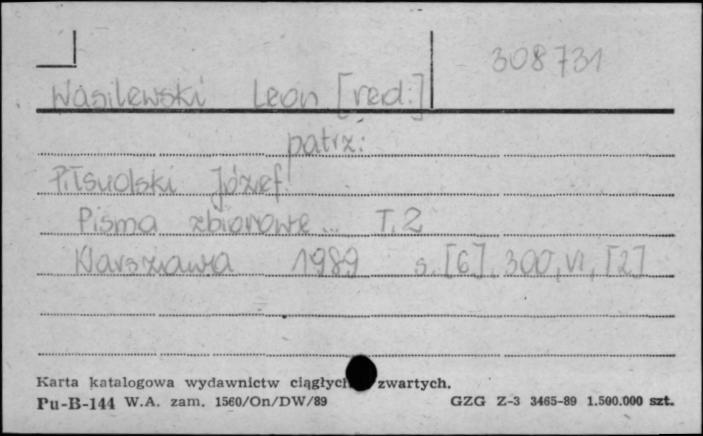 308731
Wasilewski Leon [red.]
patrz:
Piłsudski Józef.
Pisma zbiorowe... T. 2
Warszawa 1989 s. [6], 300, VI, [2]
Karta katalogowa wydawnictw ciągłych zwartych.
Pu-B-144 W.A. zam. 1560/On/DW/89 GZG Z-3 3465-89 1.500.000 szt.